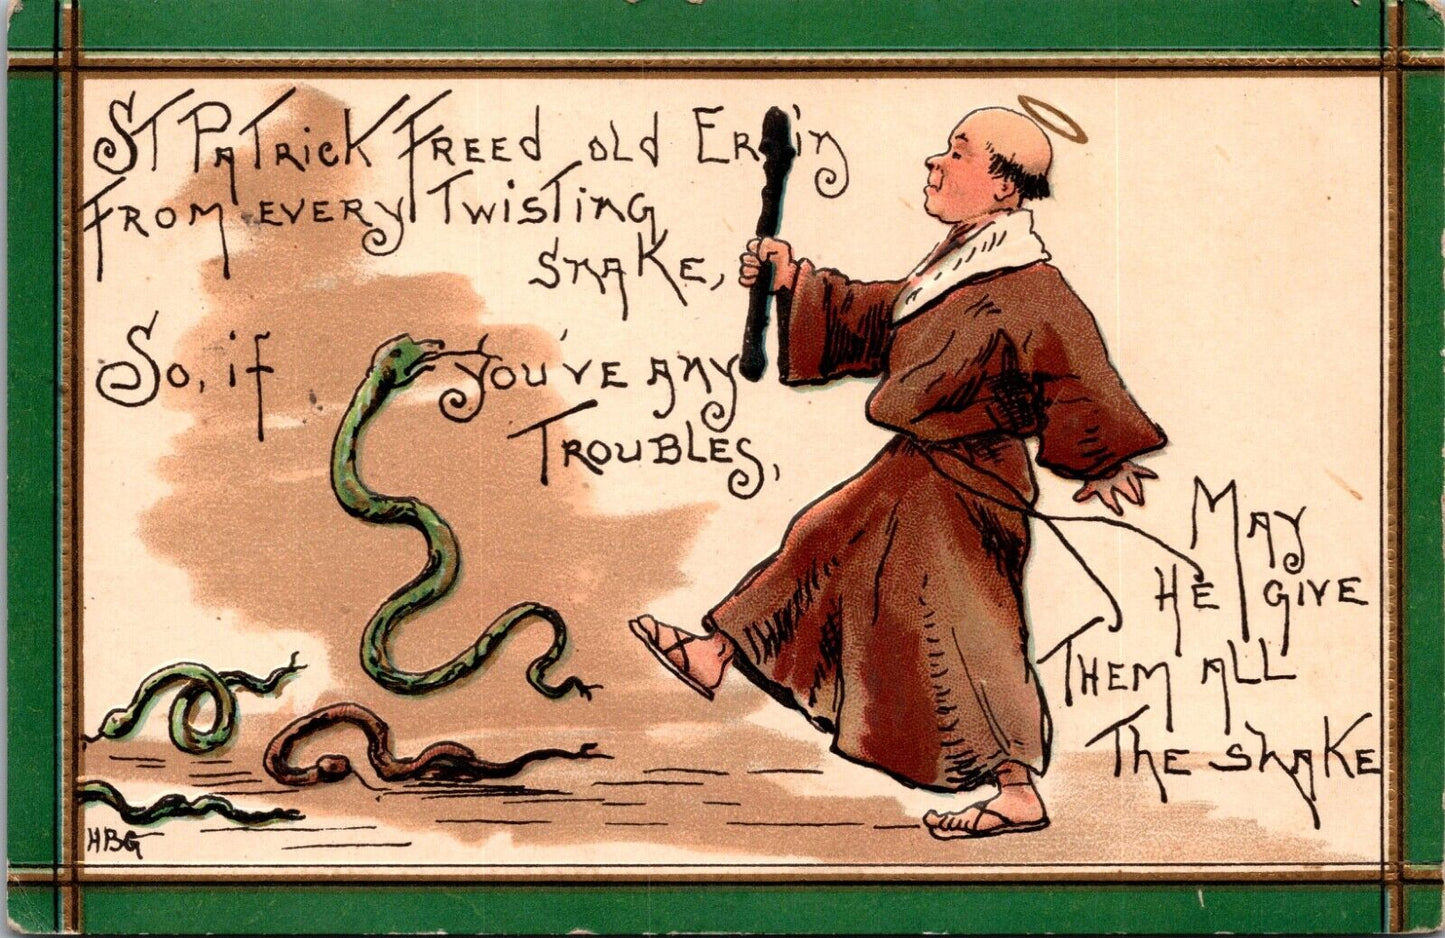 ST PATRICK FREED OLD ERIN
FROM EVERY TWISTING
SNAKE,
SO, if YOU'VE ANY
TROUBLES,
MAY
HE GIVE
THEM ALL
THE SHAKE
HBG